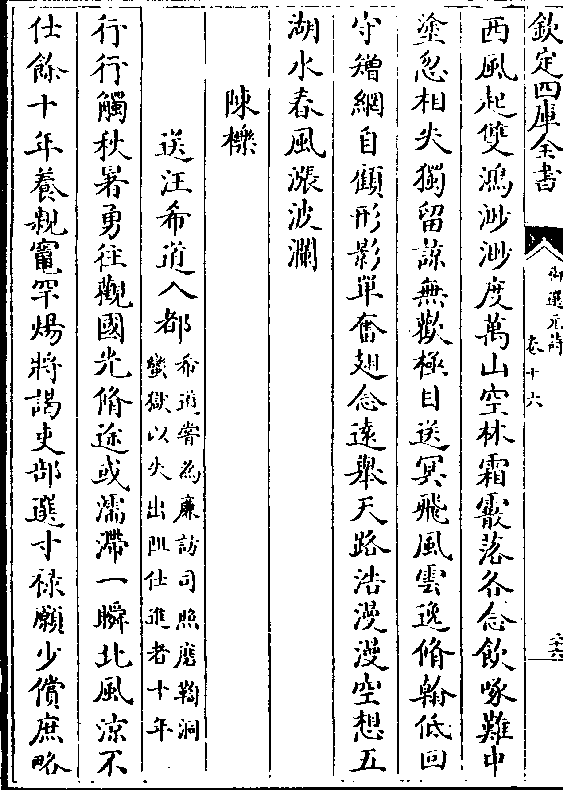 欽定四庫全書
御選元詩
卷十六
西風起雙鴻渺渺度萬山空林霜霰落各念飲啄難中
塗忽相失獨留諒無歡極目送冥飛風雲逸脩翰低回
守矰網自顧形影單奮翅念遠舉天路浩漫漫空想五
湖水春風漲波瀾
陳櫟
送汪希道入都
希道嘗為廉訪司照磨鞫洞
蠻獄以失出阻仕進者十年
行行觸秋暑勇往觀國光脩途或濡滯一瞬北風涼不
仕餘十年養親竈罕煬將謁吏部選寸祿願少償庶略